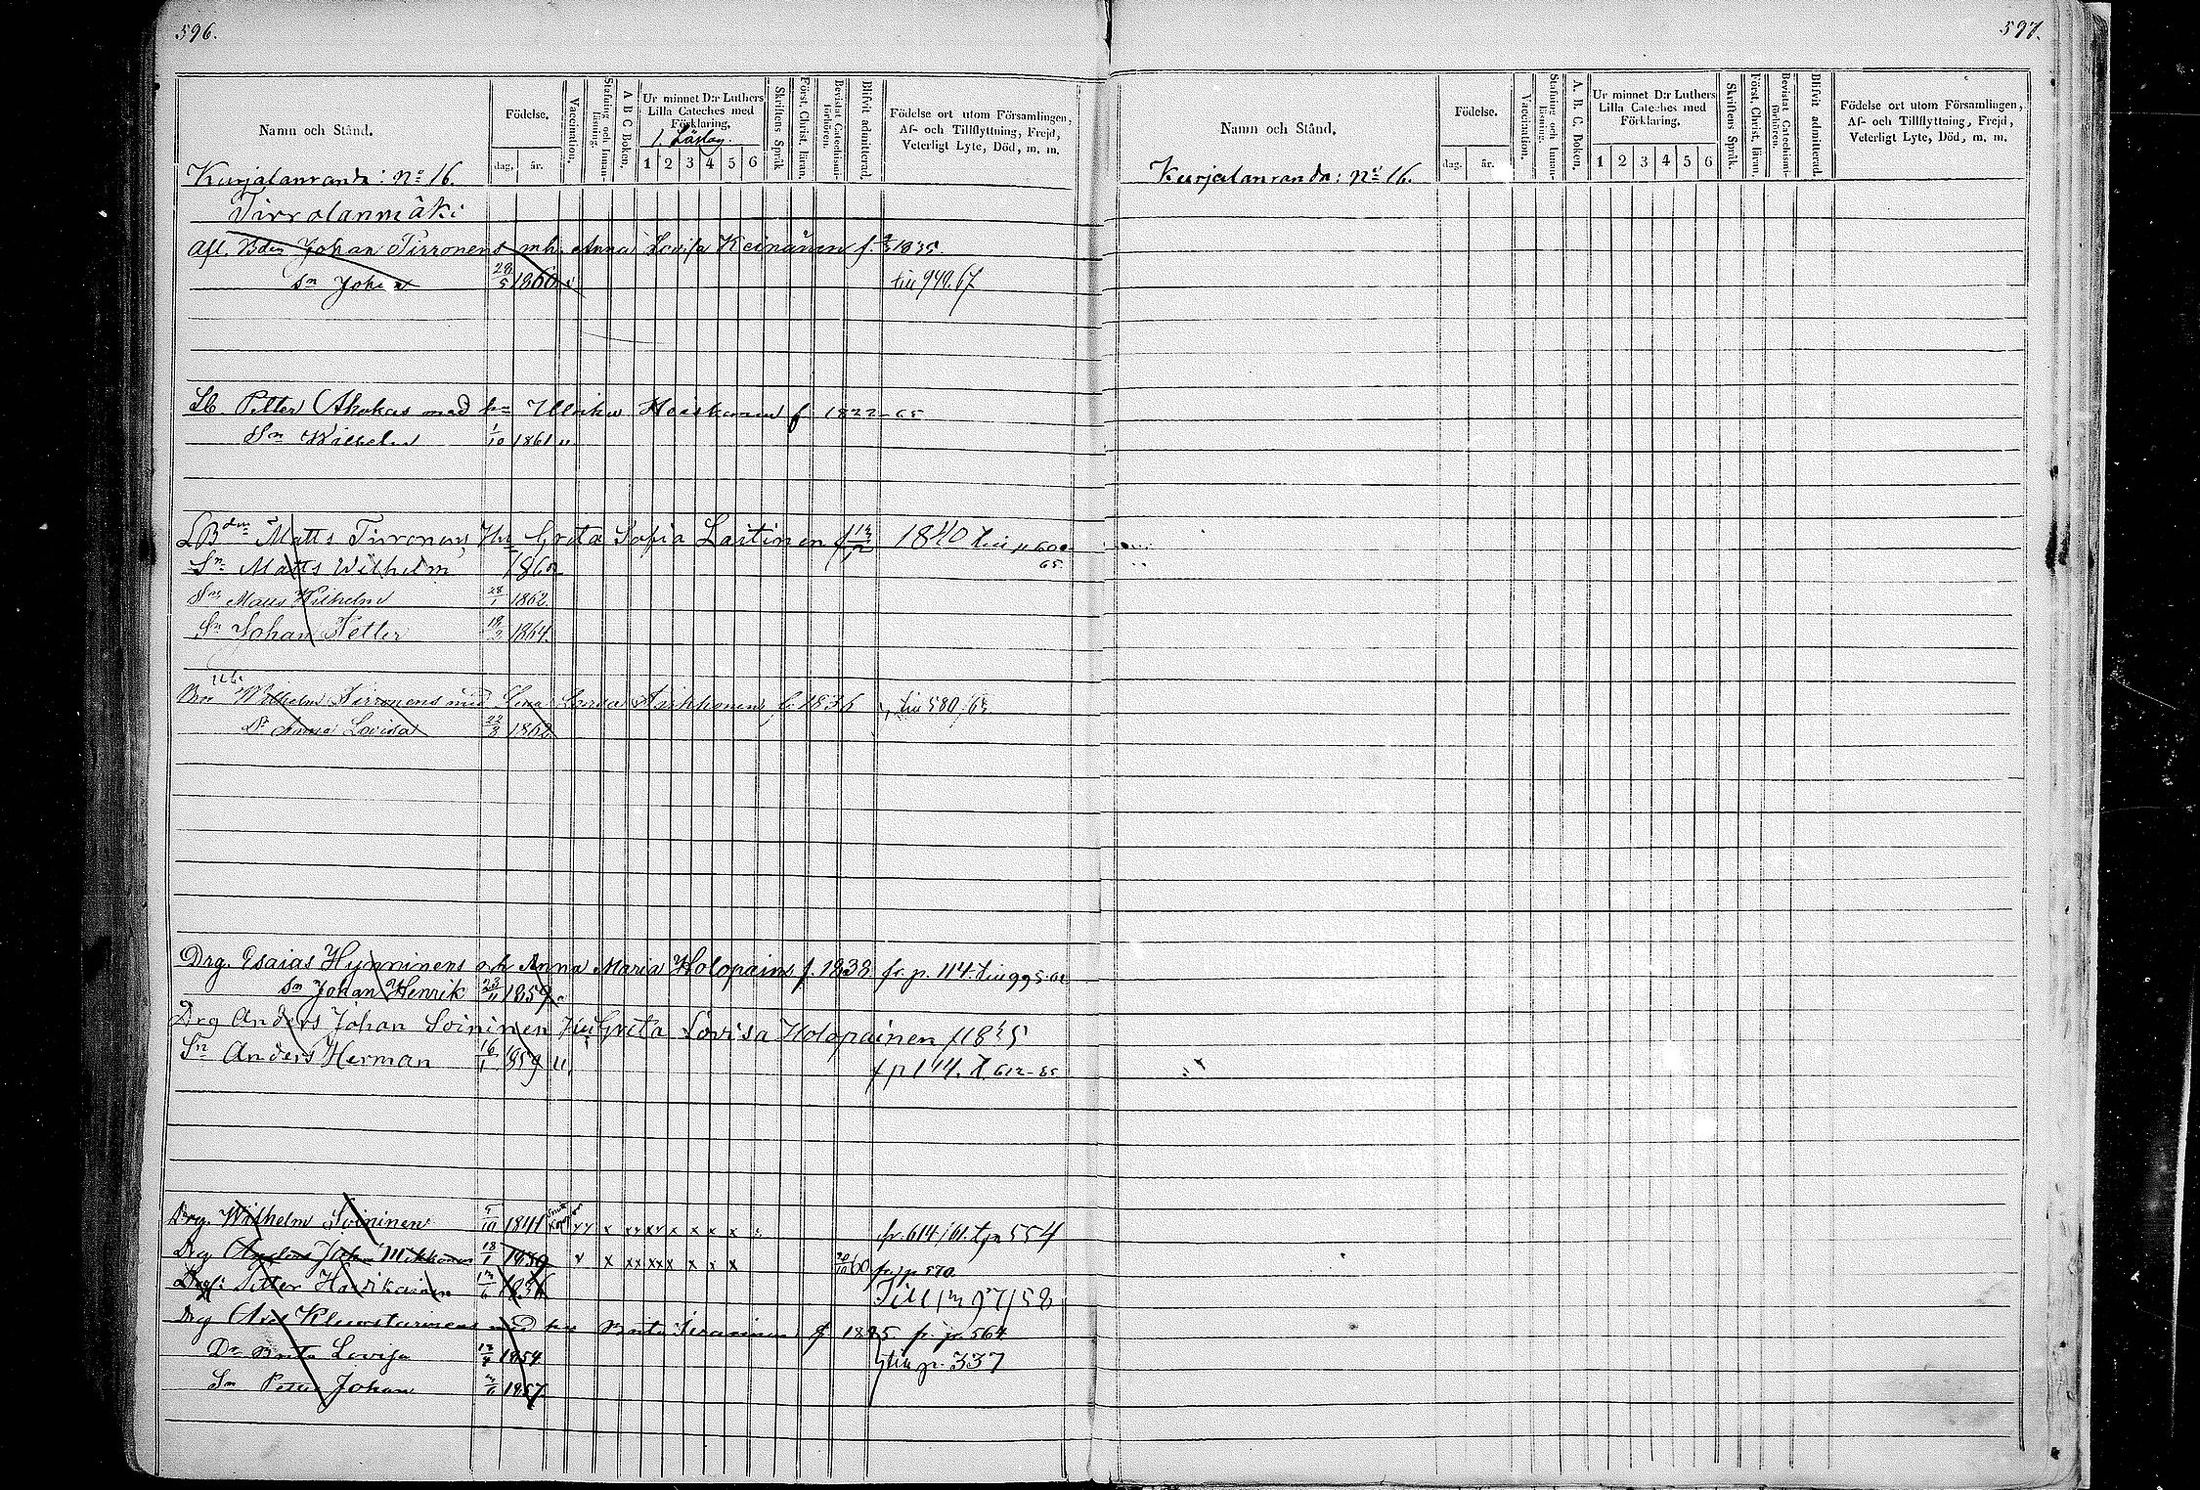 596.
Namn och Stånd.
Födelse.
dag. år.
Vaccination.
Stafning och Innan-läsning.
A B C Boken.
Ur minnet D:r Luthers Lilla Cateches med Förklaring.
1. Läslag.
1 2 3 4 5 6
Skriftens Språk
Först. Christ. läran.
Bevistat Catechismi-förhören.
Blifvit admitterad.
Födelse ort utom Församlingen, Af- och Tillflyttning, Frejd, Veterligt Lyte, Död, m. m.
Kurjalanranda: No 16.
Tirrolanmäki
Afl. Bdn Johan Tirronens mh. Anna Lovisa Keinänen f. 1835.
Sn Johan 28/5 1860 till 940.67
Petter Ahokas med hu Ulrika Heiskanen f. 1822 - 65
Sn Wilhelm 1/10 1861 v.
Matts Tirronens Hu Greta Sofia Laitinen f 1840 till p 600 65
Sn Matts Wilhelm 186
Sn Matts Wilhelm 28/1 1862.
Sn Johan Petter 18/3 1864.
Bro Wilhelm Tirronens med Lena Lovisa f. 1836 till 580/65
Dr Anna Lovisa 22/3 1862.
Drg. Esaias Hynninens och Anna Maria Holopain f. 1838. fr. p. 114. till 995.
Sn Johan Henrik 23/11 1859.
Drg Anders Johan Soininen Hu Greta Lovisa Holopainen f 1835
Sn Anders Herman 16/1 1859 v. f p 144. t. 612-
Drg. Wilhelm Soininen 5/10 1841 fr. 614/61. t. p 554
Drg Anders Joh. Mikkonen 18/1 1839 20/10 60 fr p 570.
Petter 1836 Till p 97/58
Drg med hu Brita f 1825 fr. p. 564
Dr Brita Lovisa 1854 till p. 337
Sn Petter Johan 1857.
597.
Namn och Stånd.
Födelse.
dag. år.
Vaccination.
Stafning och Innan-läsning.
A. B. C. Boken.
Ur minnet D:r Luthers Lilla Cateches med Förklaring.
1 2 3 4 5 6
Skriftens Språk.
Först. Christ. läran.
Bevistat Catechismi-förhören.
Blifvit admitterad.
Födelse ort utom Församlingen, Af- och Tillflyttning, Frejd, Veterligt Lyte, Död, m. m.
Kurjalanranda: No 16.